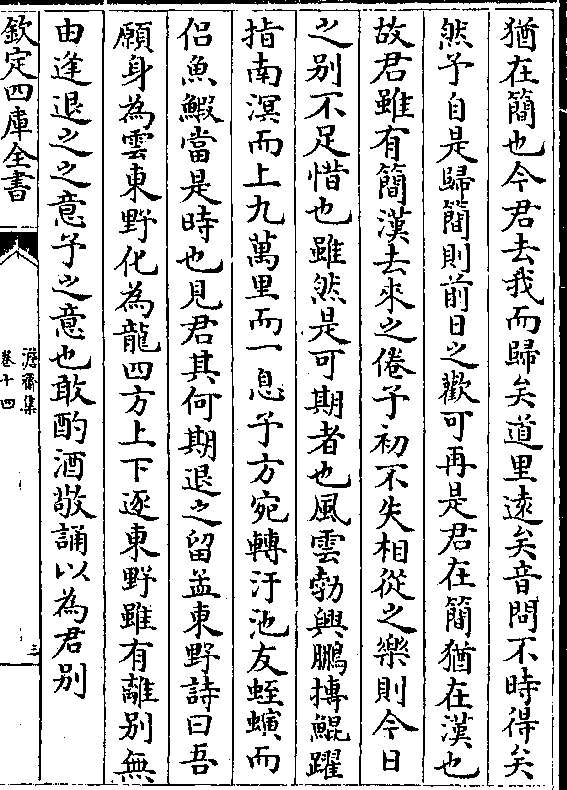 猶在簡也今君去我而歸矣道里遠矣音問不時得矣
然予自是歸簡則前日之歡可再是君在簡猶在漢也
故君雖有簡漢去來之倦予初不失相從之樂則今日
之别不足惜也雖然是可期者也風雲勃興鵬摶鯤躍
指南溟而上九萬里而一息予方宛轉汙池友蛭螾而
侣魚鰕當是時也見君其何期退之留孟東野詩曰吾
願身為雲東野化為龍四方上下逐東野雖有離别無
由逢退之之意予之意也敢酌酒敬誦以為君别
欽定四庫全書
澹齋集
卷十四
三